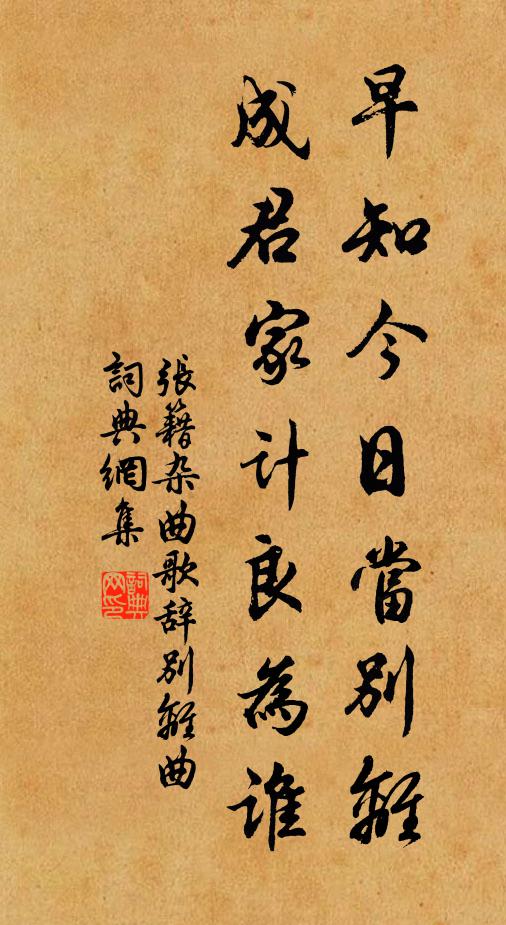 早知今日當別離
成君家计良為誰
張籍杂曲歌辞别離曲
詞典網集
詞典网印